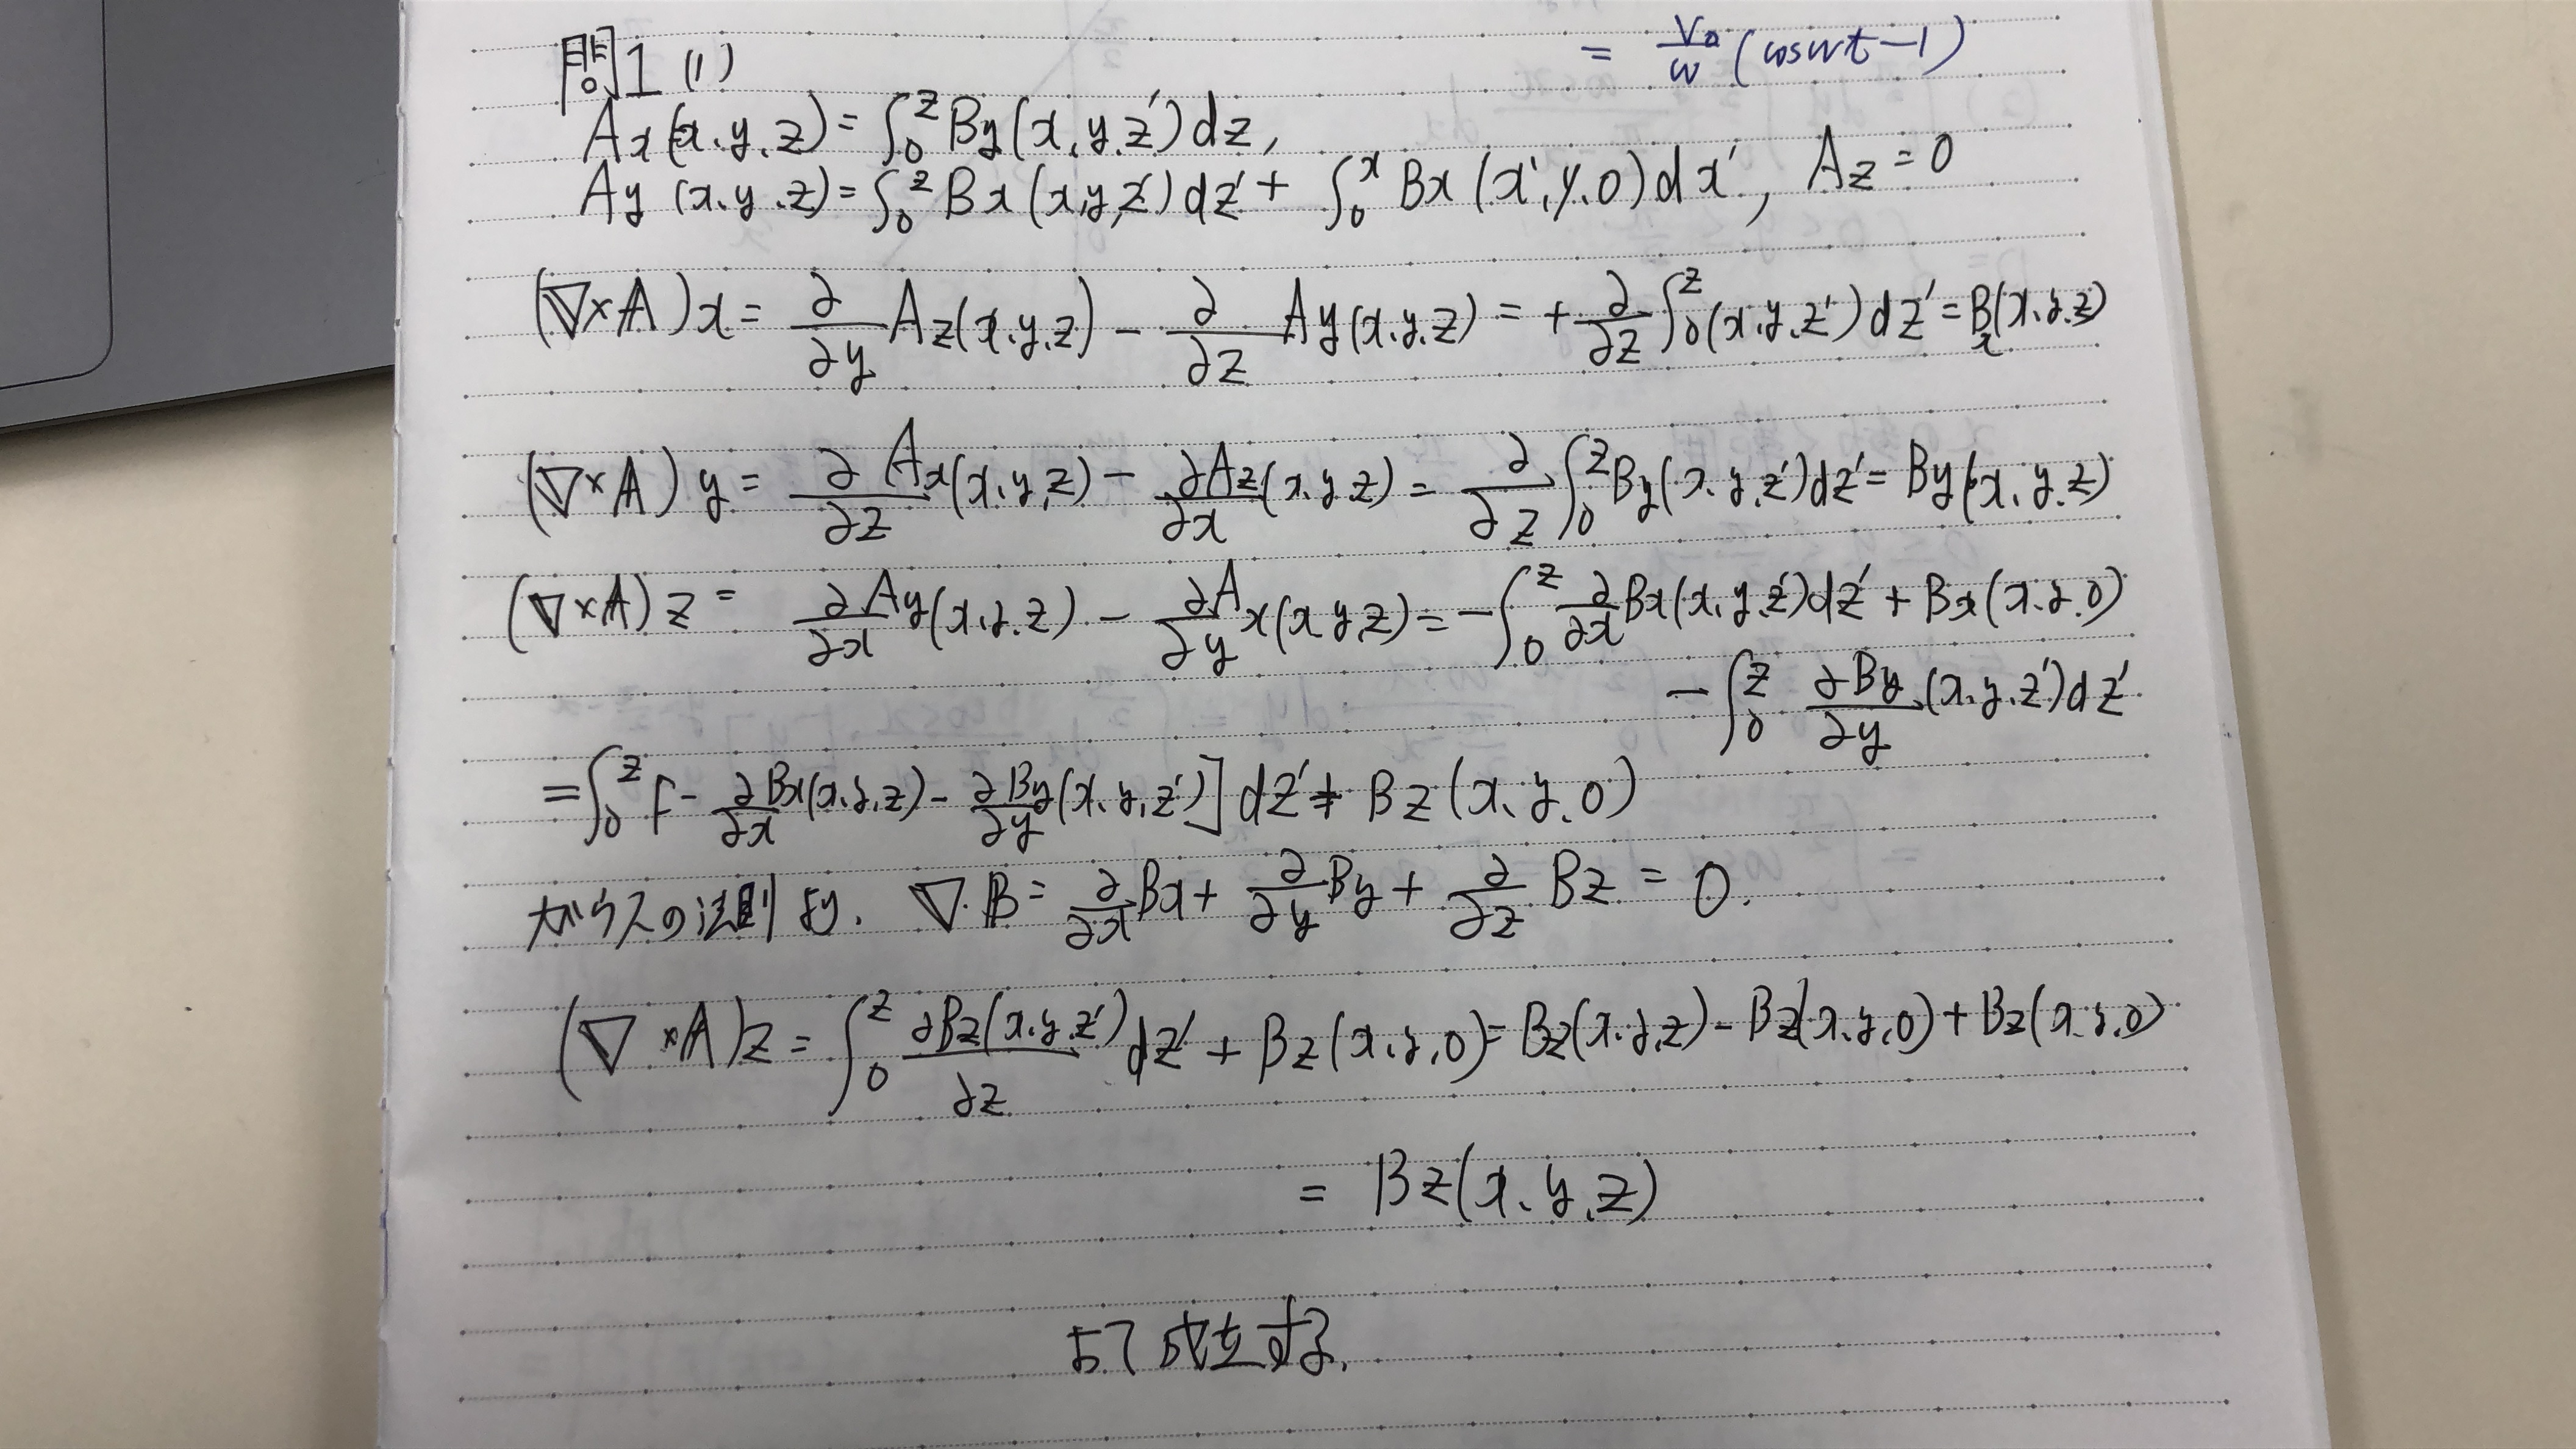 = V₀/ω (cosωt-1)
問1 (1)
Ax(x.y.z)= ∫₀ᶻ By(x,y.z')dz,
Ay (x.y.z)= ∫₀ᶻ Bx(x,y,z')dz'+ ∫₀ˣ Bx(x',y,0)dx', Az=0
(∇×A)x= ∂/∂y Az(x.y.z) - ∂/∂z Ay(x.y.z) = + ∂/∂z ∫₀ᶻ(x.y.z')dz'=Bx(x.y.z)
(∇×A)y= ∂Ax/∂z(x.y,z) - ∂Az/∂x(x.y.z) = ∂/∂z ∫₀ᶻBy(x.y.z')dz'= By(x.y.z)
(∇×A)z= ∂Ay/∂x(x.y.z) - ∂Ax/∂y(x y,z)= -∫₀ᶻ ∂/∂x Bx(x,y,z')dz' + Bx(x.y.0)
- ∫₀ᶻ ∂By/∂y (x.y.z')dz'
=∫₀ᶻ[- ∂Bx/∂x(x.y,z) - ∂By/∂y(x.y,z')]dz'+ Bz(x.y.0)
ガウスの法則より. ∇·B= ∂/∂x Bx+ ∂/∂y By+ ∂/∂z Bz = 0.
(∇×A)z= ∫₀ᶻ ∂Bz(x.y.z')/∂z dz' + Bz(x.y,0)= Bz(x.y,z)-Bz(x.y,0)+Bz(x.y.0)
= Bz(x.y.z)
よって成立する.